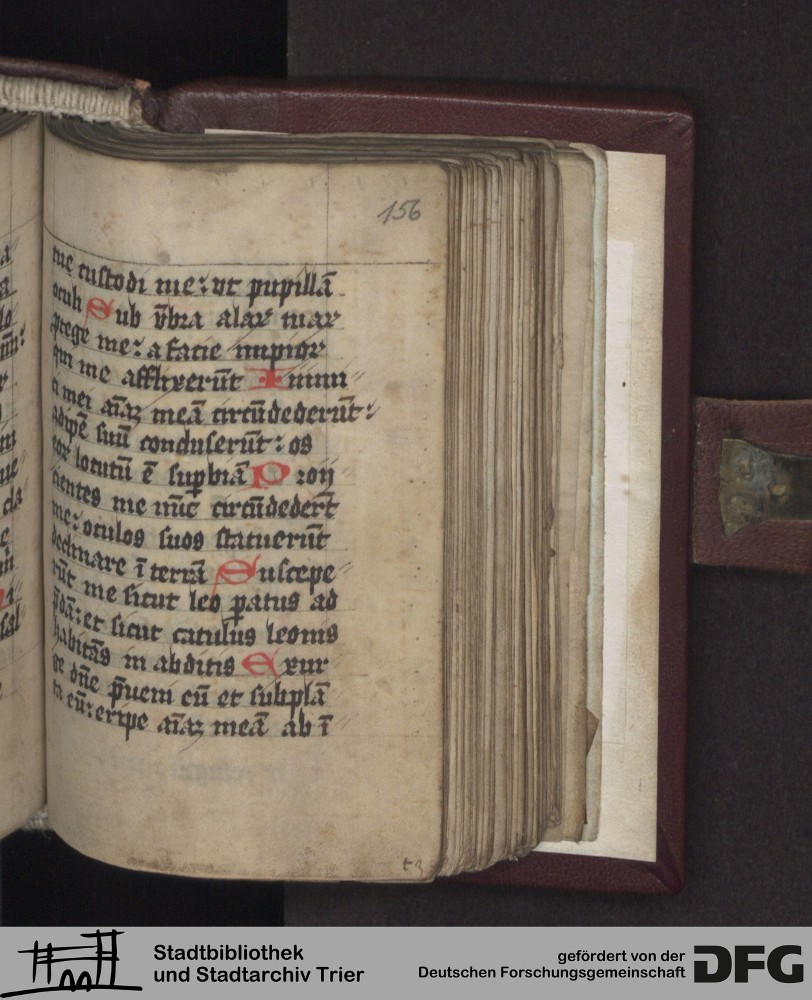 156
tue custodi me: vt pupillā
oculi Sub vmbra alaꝝ tuaꝝ
ꝓtege me: a facie impioꝝ
qui me afflixerūt Inimi
ci mei aīaꝫ meā circūdederūt:
adipē suū concluserūt: os
eoꝝ locutū ē suꝑbiā Proij
cientes me nūc circūdedert̄
me: oculos suos statuerūt
declinare ī terrā Suscepe
rūt me sicut leo ꝑatus ad
p̄dā: et sicut catulus leonis
habitās in abditis Exur
ge dn̄e p̄ueni eū et subplā
ta eū: eripe aīaꝫ meā ab ī
Stadtbibliothek
und Stadtarchiv Trier
gefördert von der
Deutschen Forschungsgemeinschaft
DFG